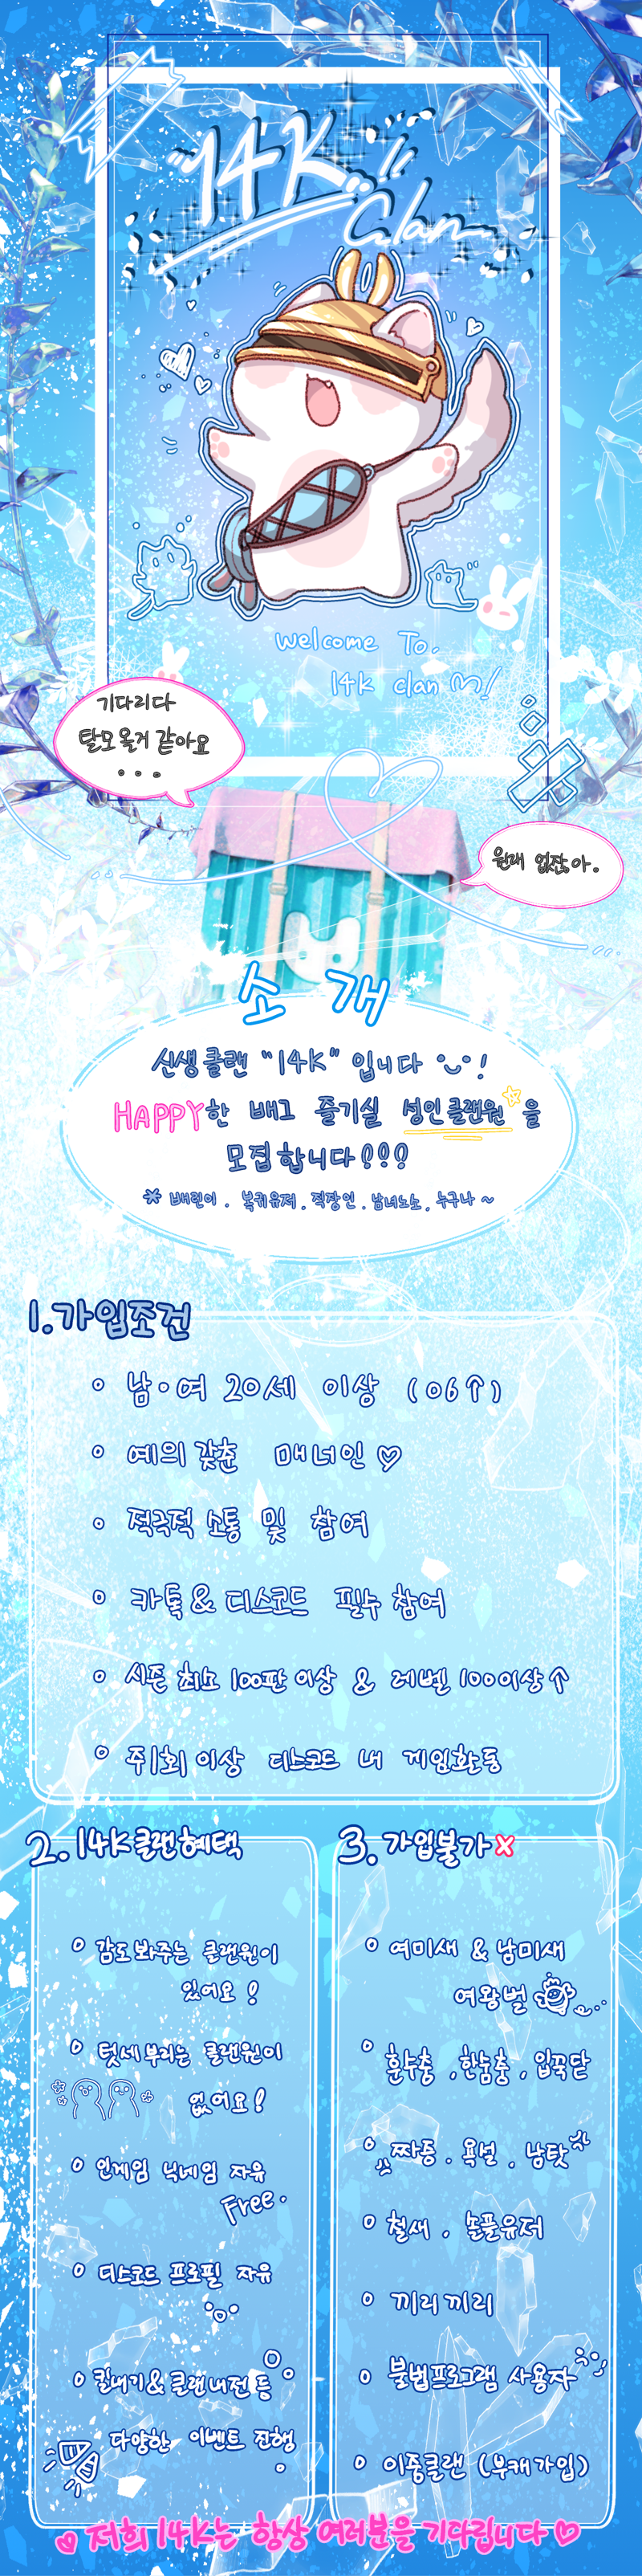 "14K..!!
Clan
Welcome To.
14K clan !
기다리다
탈모 올거 같아요
...
원래 없잖.아.
소개
신생클랜 "14K" 입니다 !
HAPPY한 배그 즐기실 성인클랜원을
모집합니다!!!
* 배린이, 복귀유저, 직장인, 남녀노소, 누구나~
1.가입조건
남·여 20세 이상 (06↑)
예의 갖춘 매너인♡
적극적 소통 및 참여
카톡&디스코드 필수 참여
시즌 최소 100판 이상 & 레벨 100이상↑
주1회 이상 디스코드 내 게임활동
2.14K클랜혜택
감도봐주는 클랜원이
있어요!
텃세부리는 클랜원이
없어요!
인게임 닉네임 자유
Free.
디스코드 프로필 자유
킬내기&클랜내전 등
다양한 이벤트 진행
3.가입불가x
여미새 & 남미새
여왕벌
훈수충, 한숨충, 입꾹닫
짜증, 욕설, 남탓
철새, 손풀유저
끼리끼리
불법프로그램 사용자
이중클랜 (부캐가입)
♡ 저희 14K는 항상 여러분을 기다립니다 ♡